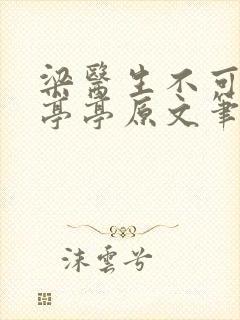 梁醫生不可
亭亭原文筆
沫雲兮